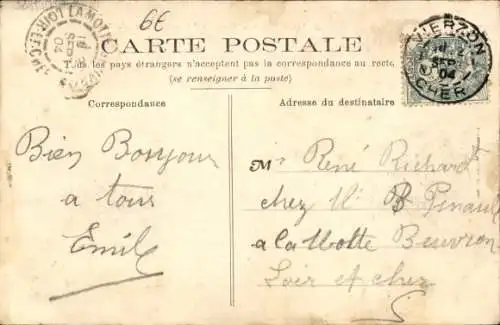 6E
LOIR-ET-CHER LAMOTTE
SEP
04
CARTE POSTALE
Tous les pays étrangers n'acceptent pas la correspondance au recto.
(se renseigner à la poste)
VIERZON
SEP.
04
CHER
Correspondance
Bien Bonjour
a tous
Emile
Adresse du destinataire
Mr René Richard
chez M B Pinault
a la Motte Beuvron
Loir et cher